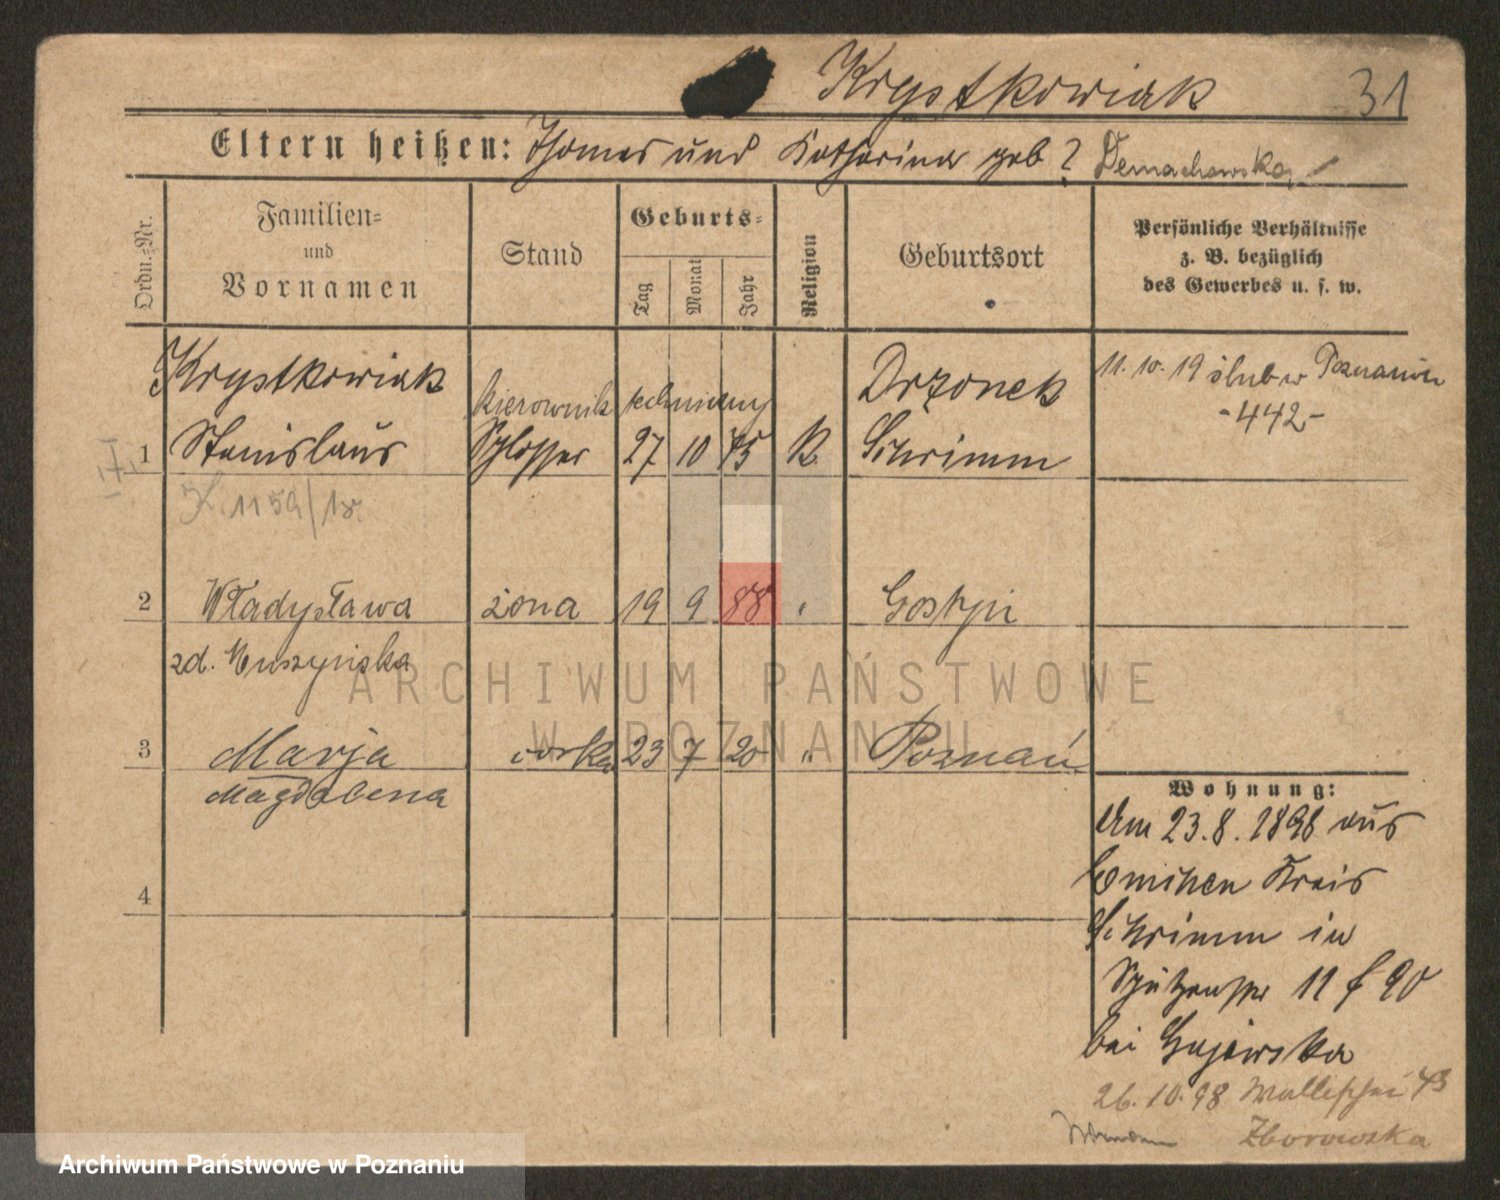 Krystkowiak 31
Eltern heißen: Thomas und Katharina geb ? Demachowska
Ordn.-Nr.
Familien-
und
Vornamen
Stand
Geburts-
Tag
Monat
Jahr
Religion
Geburtsort
Persönliche Verhältnisse
z. B. bezüglich
des Gewerbes u. s. w.
Krystkowiak
kierownik techniczny
Drzonek
11. 10. 19 ślub w Poznaniu
- 442 -
1 Stanislaus Schlosser 27 10 75 K. Schrimm
K. 1159/18.
2 Władysława żona 19 9 88 " Gostyń
zd. Muszyńska
3 Marja córka 23 7 20 " Poznań
Magdalena
4
Wohnung:
Am 23.8.1898 aus
Emchen Kreis
Schrimm in
Schützenstr 11
bei Gajewska
26.10.98 Wallischei 73
Zborowska
ARCHIWUM PAŃSTWOWE
W POZNANIU
Archiwum Państwowe w Poznaniu